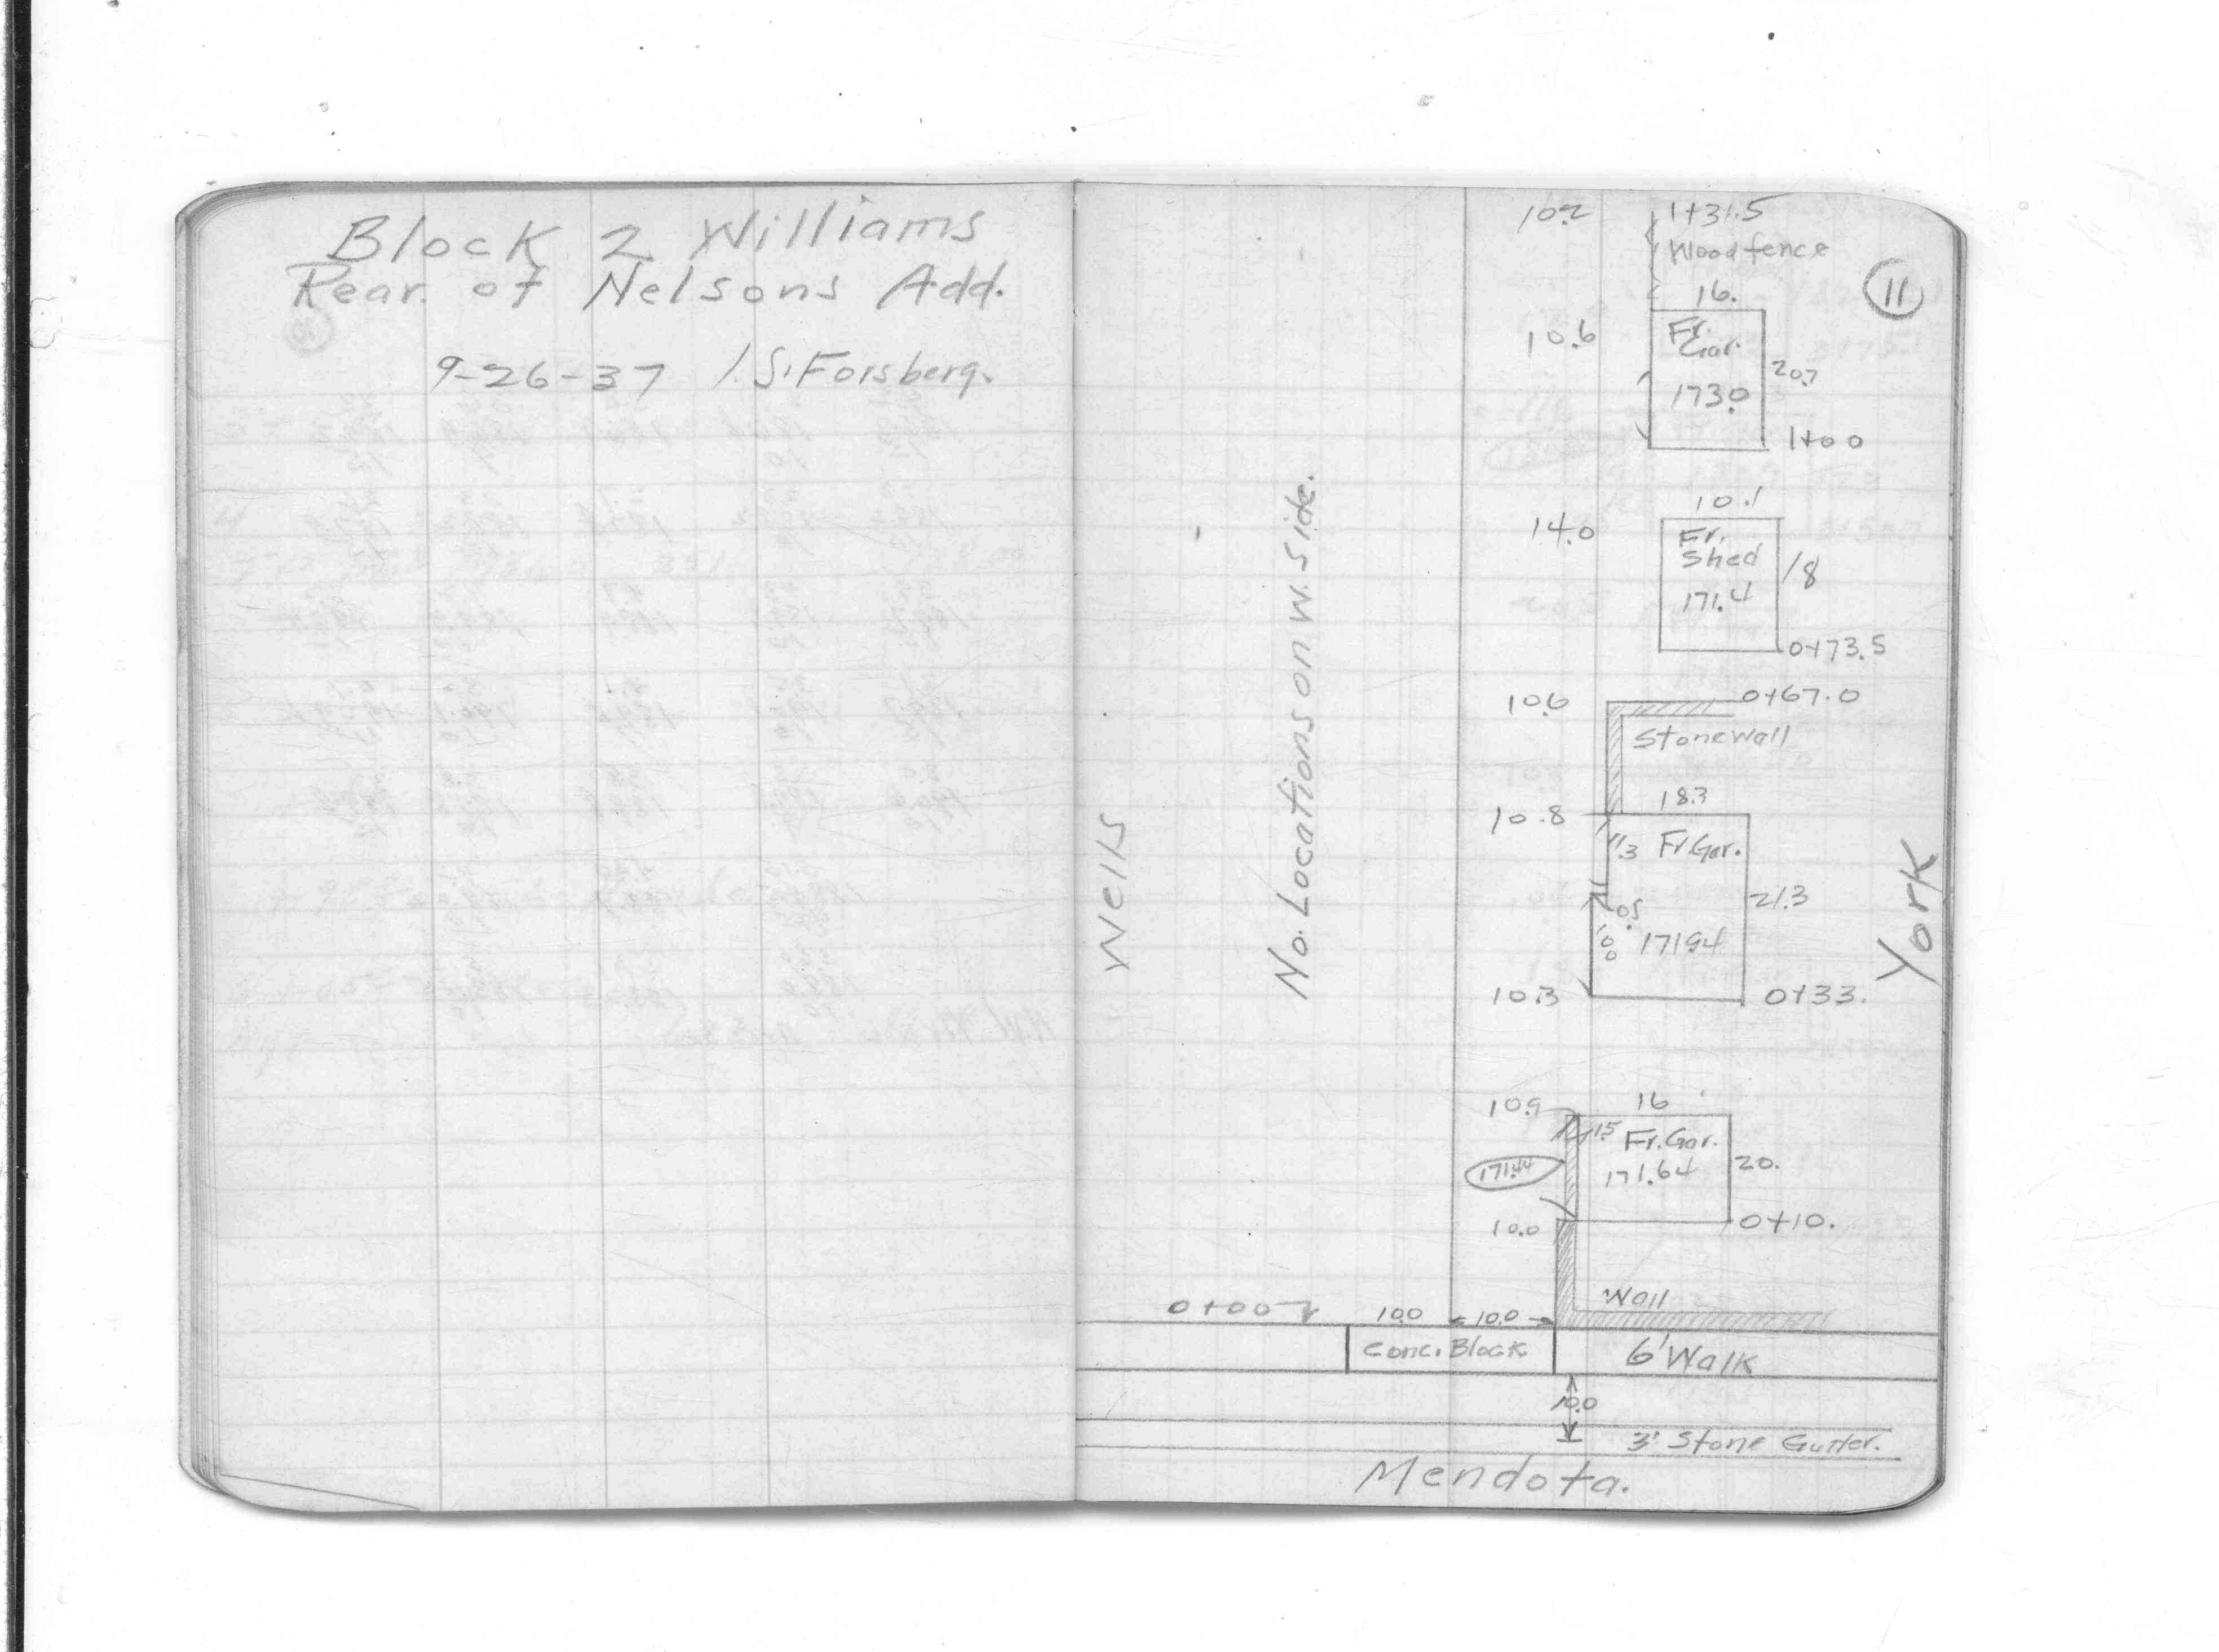 Block 2 Williams
Rear. of Nelsons Add.
9-26-37 / S. Forsberg.
10.2 1+31.5
Wood fence
11
16.
10.6 Fr.
Gar.
20.7
173.0
1+00
10.1
14.0 Fr.
Shed 18
171.4
0+73.5
10.6 0+67.0
Stone wall
18.3
10.8
11.3 Fr. Gar.
21.3
0.5
10.0 171.94
10.3 0+33.
Wells
No. Locations on W. Side.
York
10.9 16
1.5 Fr. Gar.
171.44 171.64 20.
10.0 0+10.
Wall
0+00 10.0 10.0
Conc. Block 6' Walk
10.0
3' Stone Gutter.
Mendota.